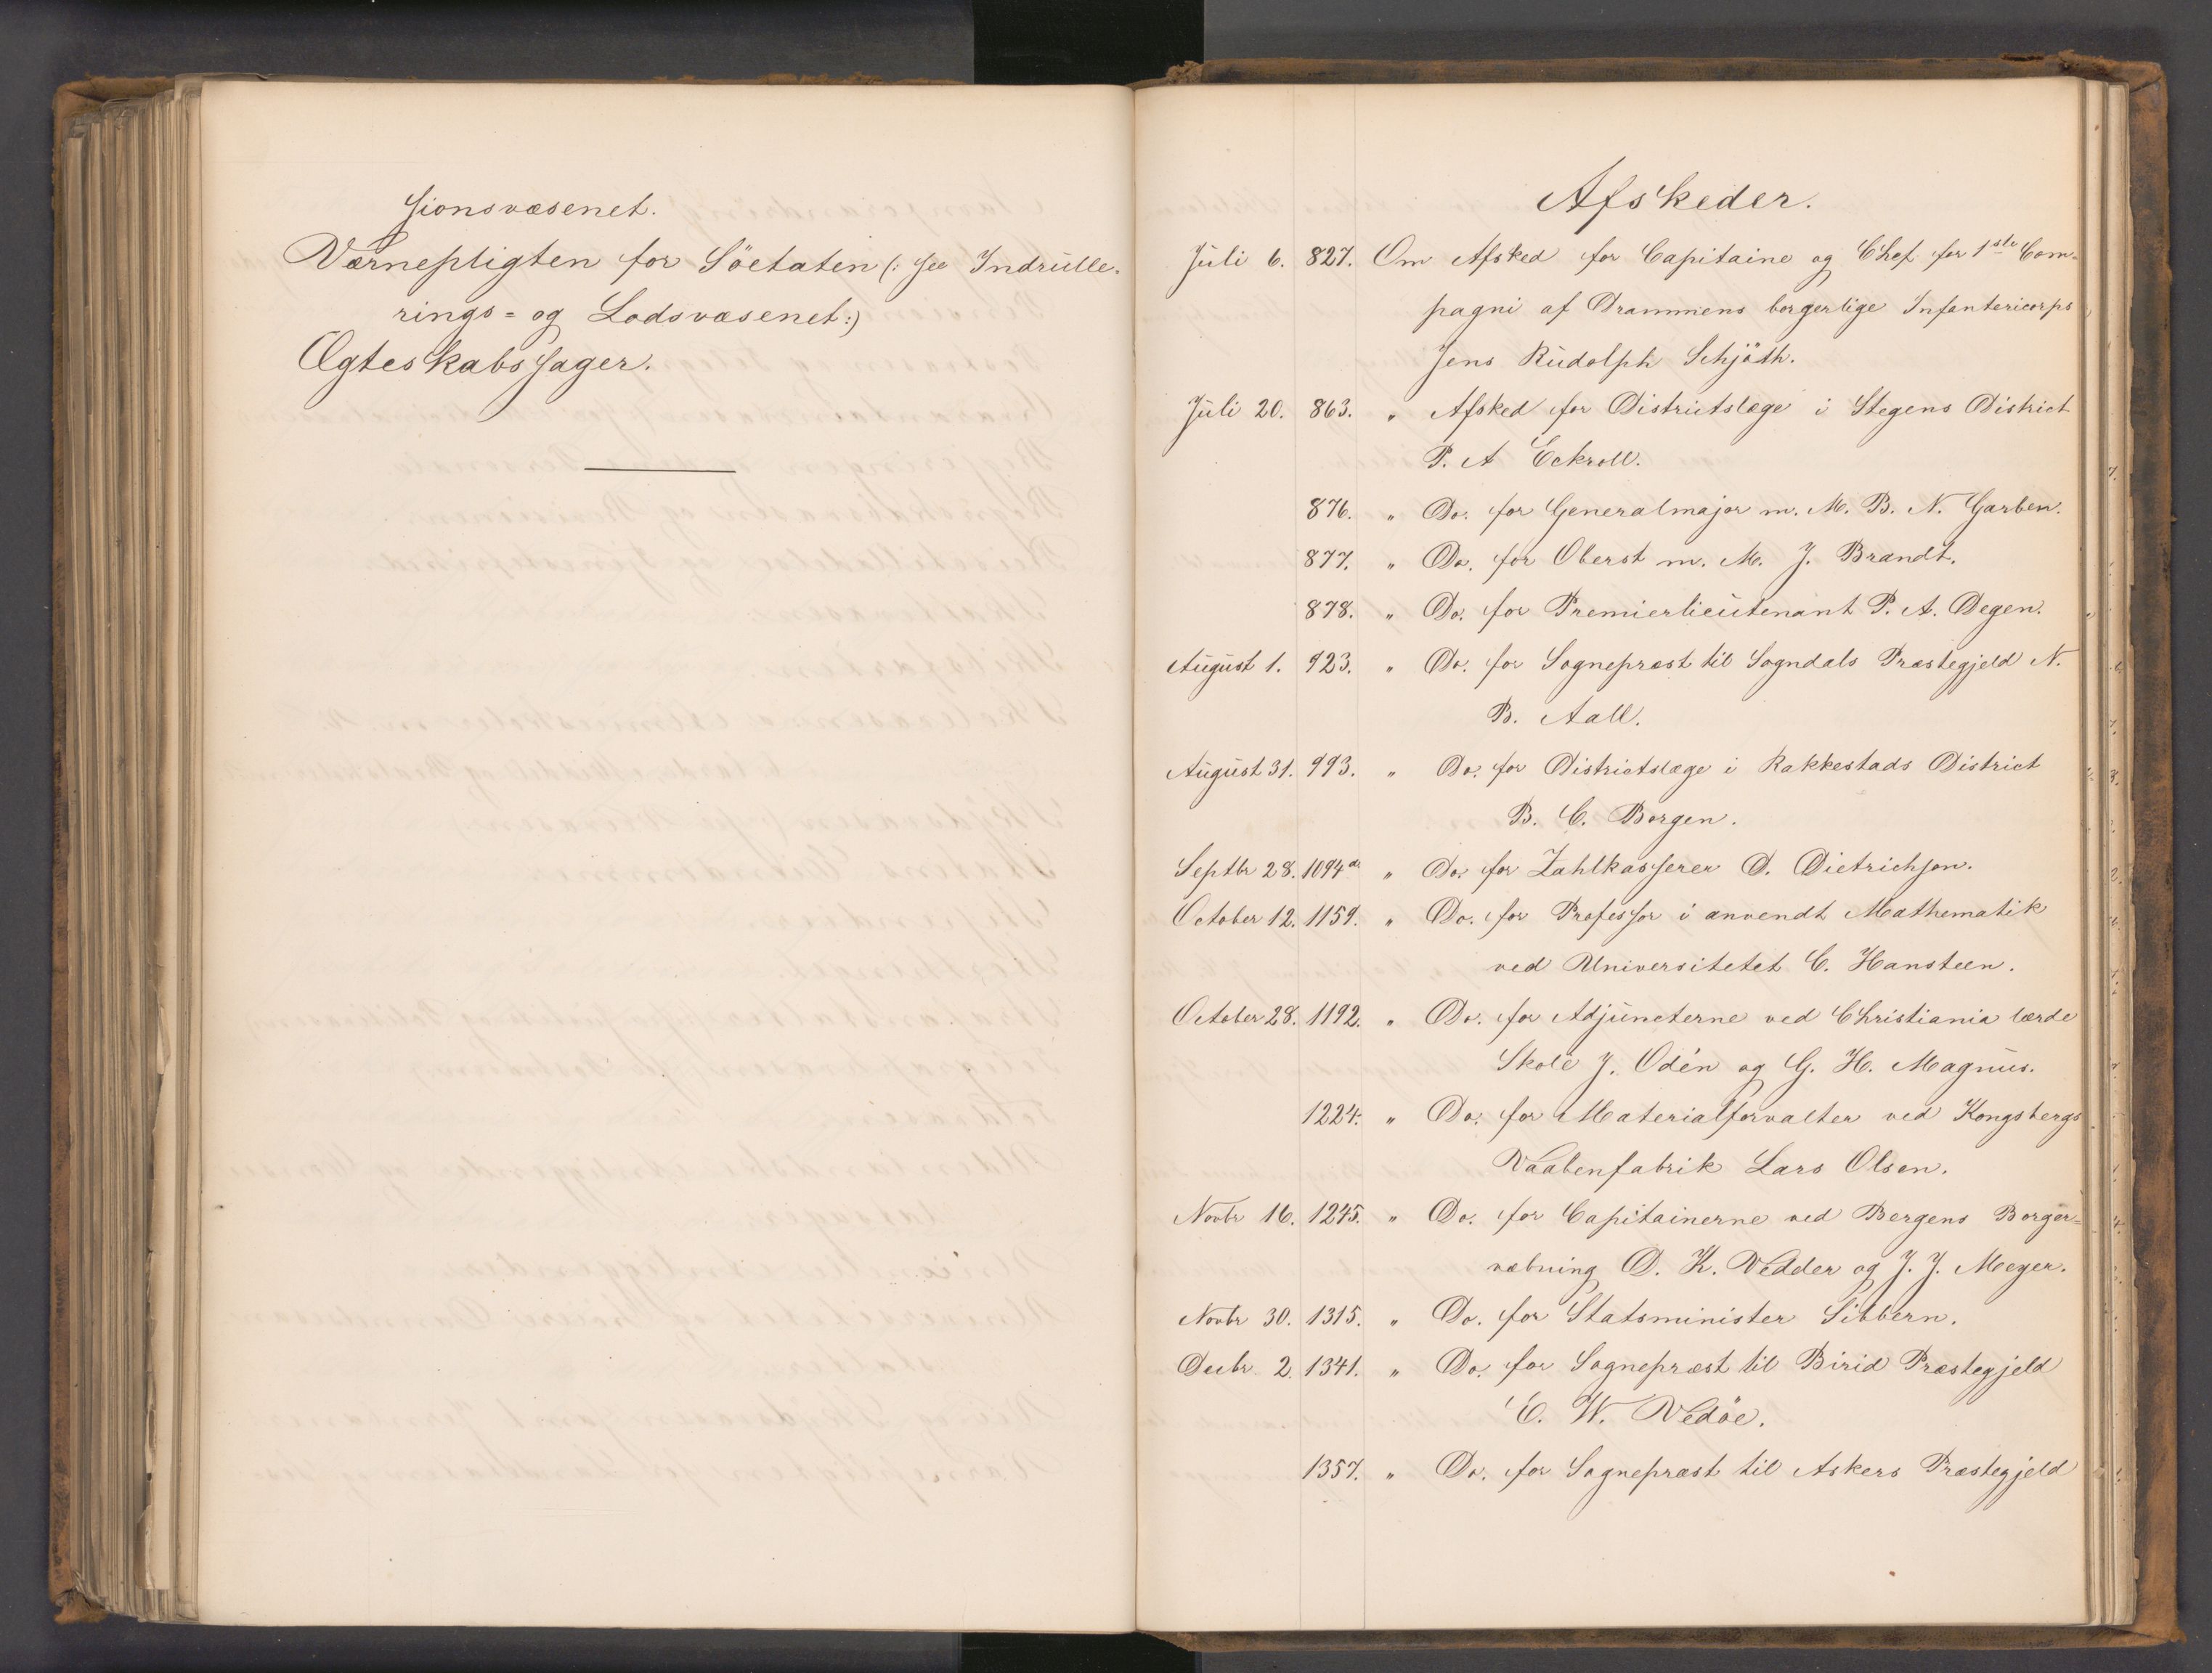 sionsvæsenet.
Værnepligten for Söetaten (: see Indrulle-
rings= og Lodsvæsenet:)
Ægteskabssager.
Afskeder.
Juli 6. 827. Om Afsked for Capitaine og Chef for 1ste Com-
pagni af Drammens borgerlige Infantericorps
Jens Rudolph Schjöth.
Juli 20. 863. " Afsked for Districtslæge i Stegens District
P. A Eckroll.
876. " Do. for Generalmajor m. M. B. N. Garben.
877. " Do. for Oberst m. M. J. Brandt.
878. " Do. for Premierlieutenant P. A. Degen.
August 1. 923. " Do. for Sognepræst til Sogndals Præstegjeld N.
B. Aall.
August 31. 993. " Do. for Districtslæge i Rakkestads District
B. C. Borgen.
Septbr 28. 1094 " Do. for Zahlkasserer D. Dietrichson.
October 12. 1159. " Do. for Professor i anvendt Mathematik
ved Universitetet C. Hansteen.
October 28. 1192. " Do. for Adjuncterne ved Christiania lærde
Skole J. Odén og G. H. Magnus.
1224. " Do. for Materialforvalter ved Kongsbergs
Vaabenfabrik Lars Olsen.
Novbr 16. 1245. " Do. for Capitainerne ved Bergens Borger=
væbning D. K. Vedder og J. J. Meyer.
Novbr 30. 1315. " Do. for Statsminister Sibbern.
Decbr 2. 1341. " Do. for Sognepræst til Birid Præstegjeld
E. W. Vedöe.
1357. " Do. for Sognepræst til Askers Præstegjeld